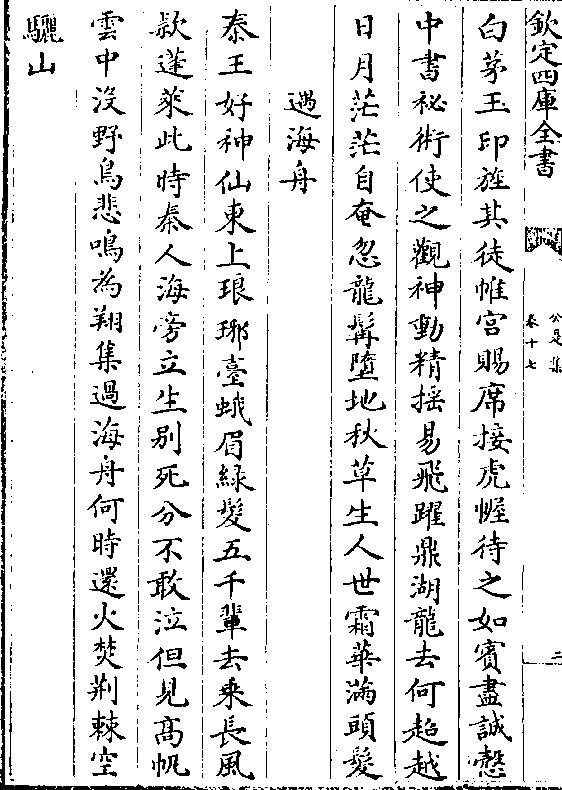 欽定四庫全書
公是集
卷十七
二
白茅玉印旌其徒帷宫賜席接虎幄待之如賓盡誠慤
中書祕術使之觀神動精揺易飛躍鼎湖龍去何超越
日月茫茫自奄忽龍髯墮地秋草生人世霜華滿頭髮
遇海舟
秦王好神仙東上琅琊臺蛾眉緑髮五千輩去乘長風
欵蓬萊此時秦人海旁立生别死分不敢泣但見髙帆
雲中沒野鳥悲鳴為翔集過海舟何時還火焚荆棘空
驪山